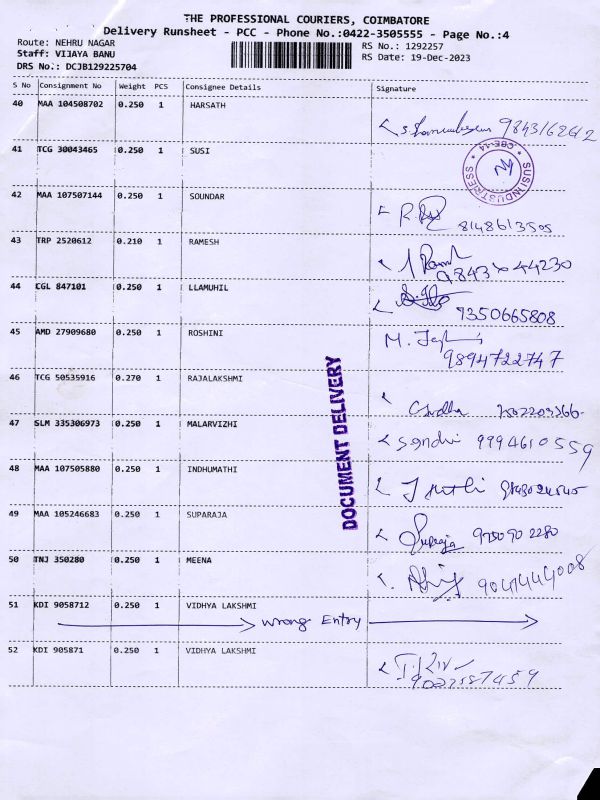 THE PROFESSIONAL COURIERS, COIMBATORE
Delivery Runsheet - PCC - Phone No.:0422-3505555 - Page No.:4
Route: NEHRU NAGAR
Staff: VIJAYA BANU
DRS No.: DCJB129225704
RS No.: 1292257
RS Date: 19-Dec-2023
S No Consignment No Weight PCS Consignee Details Signature
40 MAA 104508702 0.250 1 HARSATH
9843162612
41 TCG 30043465 0.250 1 SUSI
SUSI INDUSTRIES * CBE-44 *
42 MAA 107507144 0.250 1 SOUNDAR
8148613505
43 TRP 2520612 0.210 1 RAMESH
9843 44230
44 CGL 847101 0.250 1 LLAMUHIL
9350665808
45 AMD 27909680 0.250 1 ROSHINI
M.
9894722747
46 TCG 50535916 0.270 1 RAJALAKSHMI
47 SLM 335306973 0.250 1 MALARVIZHI
Sandhi 9994610559
48 MAA 107505880 0.250 1 INDHUMATHI
49 MAA 105246683 0.250 1 SUPARAJA
Supraja 9750902280
50 TNJ 350280 0.250 1 MEENA
9041444008
51 KDI 9058712 0.250 1 VIDHYA LAKSHMI
wrong Entry
52 KDI 905871 0.250 1 VIDHYA LAKSHMI
DOCUMENT DELIVERY